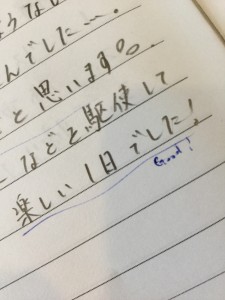 うな
んでした…。
と思います。
などと駆使して
楽しい1日でした!
Good!